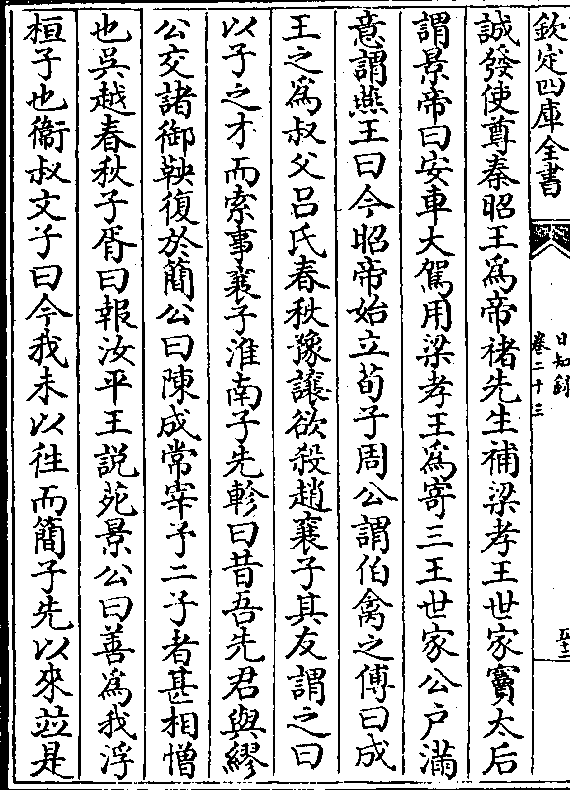 欽定四庫全書
日知錄
卷二十三
誠發使尊秦昭王爲帝禇先生補梁孝王世家竇太后
謂景帝曰安車大駕用梁孝王爲寄三王世家公户滿
意謂燕王曰今昭帝始立荀子周公謂伯禽之傅曰成
王之爲叔父吕氏春秋豫讓欲殺趙襄子其友謂之曰
以子之才而索事襄子淮南子先軫曰昔吾先君與繆
公交諸御鞅復於簡公曰陳成常宰予二子者甚相憎
也吳越春秋子胥曰報汝平王説苑景公曰善爲我浮
桓子也衞叔文子曰今我未以徃而簡子先以來竝是